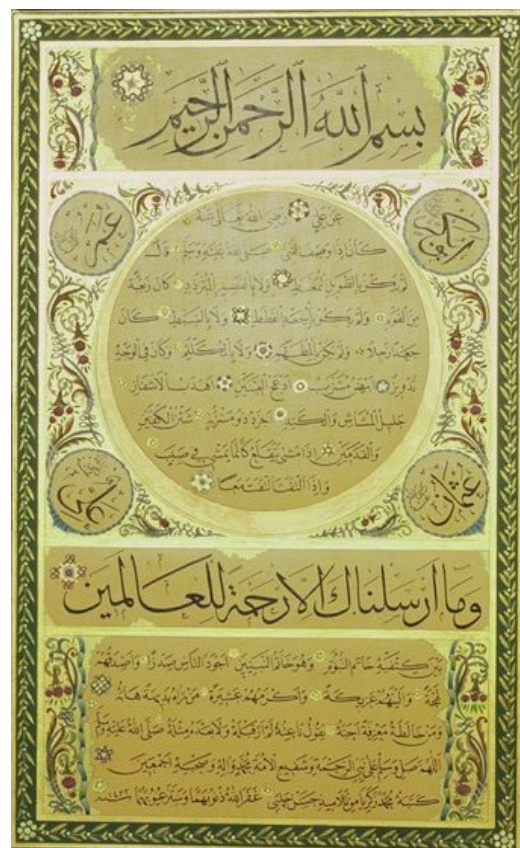 بِسْمِ اللهِ الرَّحْمٰنِ الرَّحِيمِ
ابو بكر
عمر
عَنْ عَلِيٍّ رَضِيَ اللهُ تَعَالَى عَنْهُ
كَانَ اِذَا وَصَفَ النَّبِيَّ صَلَّى اللهُ عَلَيْهِ وَسَلَّمَ قَالَ
لَمْ يَكُنْ بِالطَّوِيلِ الْمُمَغَّطِ وَلَا بِالْقَصِيرِ الْمُتَرَدِّدِ كَانَ رَبْعَةً
مِنَ الْقَوْمِ وَلَمْ يَكُنْ بِالْجَعْدِ الْقَطَطِ وَلَا بِالسَّبِطِ كَانَ
جَعْدًا رَجِلًا وَلَمْ يَكُنْ بِالْمُطَهَّمِ وَلَا بِالْمُكَلْثَمِ وَكَانَ فِي الْوَجْهِ
تَدْوِيرٌ اَبْيَضُ مُشْرَبٌ اَدْعَجُ الْعَيْنَيْنِ اَهْدَبُ الْاَشْفَارِ
جَلِيلُ الْمُشَاشِ وَالْكَتَدِ اَجْرَدُ ذُو مَسْرُبَةٍ شَثْنُ الْكَفَّيْنِ
وَالْقَدَمَيْنِ اِذَا مَشَى يَتَقَلَّعُ كَاَنَّمَا يَمْشِي فِي صَبَبٍ
وَاِذَا الْتَفَتَ الْتَفَتَ مَعًا
عثمان
علي
وَمَا اَرْسَلْنَاكَ اِلَّا رَحْمَةً لِلْعَالَمِينَ
بَيْنَ كَتِفَيْهِ خَاتَمُ النُّبُوَّةِ وَهُوَ خَاتَمُ النَّبِيِّينَ اَجْوَدُ النَّاسِ صَدْرًا وَاَصْدَقُهُمْ
لَهْجَةً وَاَلْيَنُهُمْ عَرِيكَةً وَاَكْرَمُهُمْ عَشِيرَةً مَنْ رَآهُ بَدِيهَةً هَابَهُ
وَمَنْ خَالَطَهُ مَعْرِفَةً اَحَبَّهُ يَقُولُ نَاعِتُهُ لَمْ اَرَ قَبْلَهُ وَلَا بَعْدَهُ مِثْلَهُ صَلَّى اللهُ عَلَيْهِ وَسَلَّمَ
اَللّٰهُمَّ صَلِّ وَسَلِّمْ عَلَى نَبِيِّ الرَّحْمَةِ وَشَفِيعِ الْاُمَّةِ مُحَمَّدٍ وَآلِهِ وَصَحْبِهِ اَجْمَعِينَ
كتبه محمد زكريا من تلاميذ حسن چلبي غفر الله ذنوبهما وستر عيوبهما